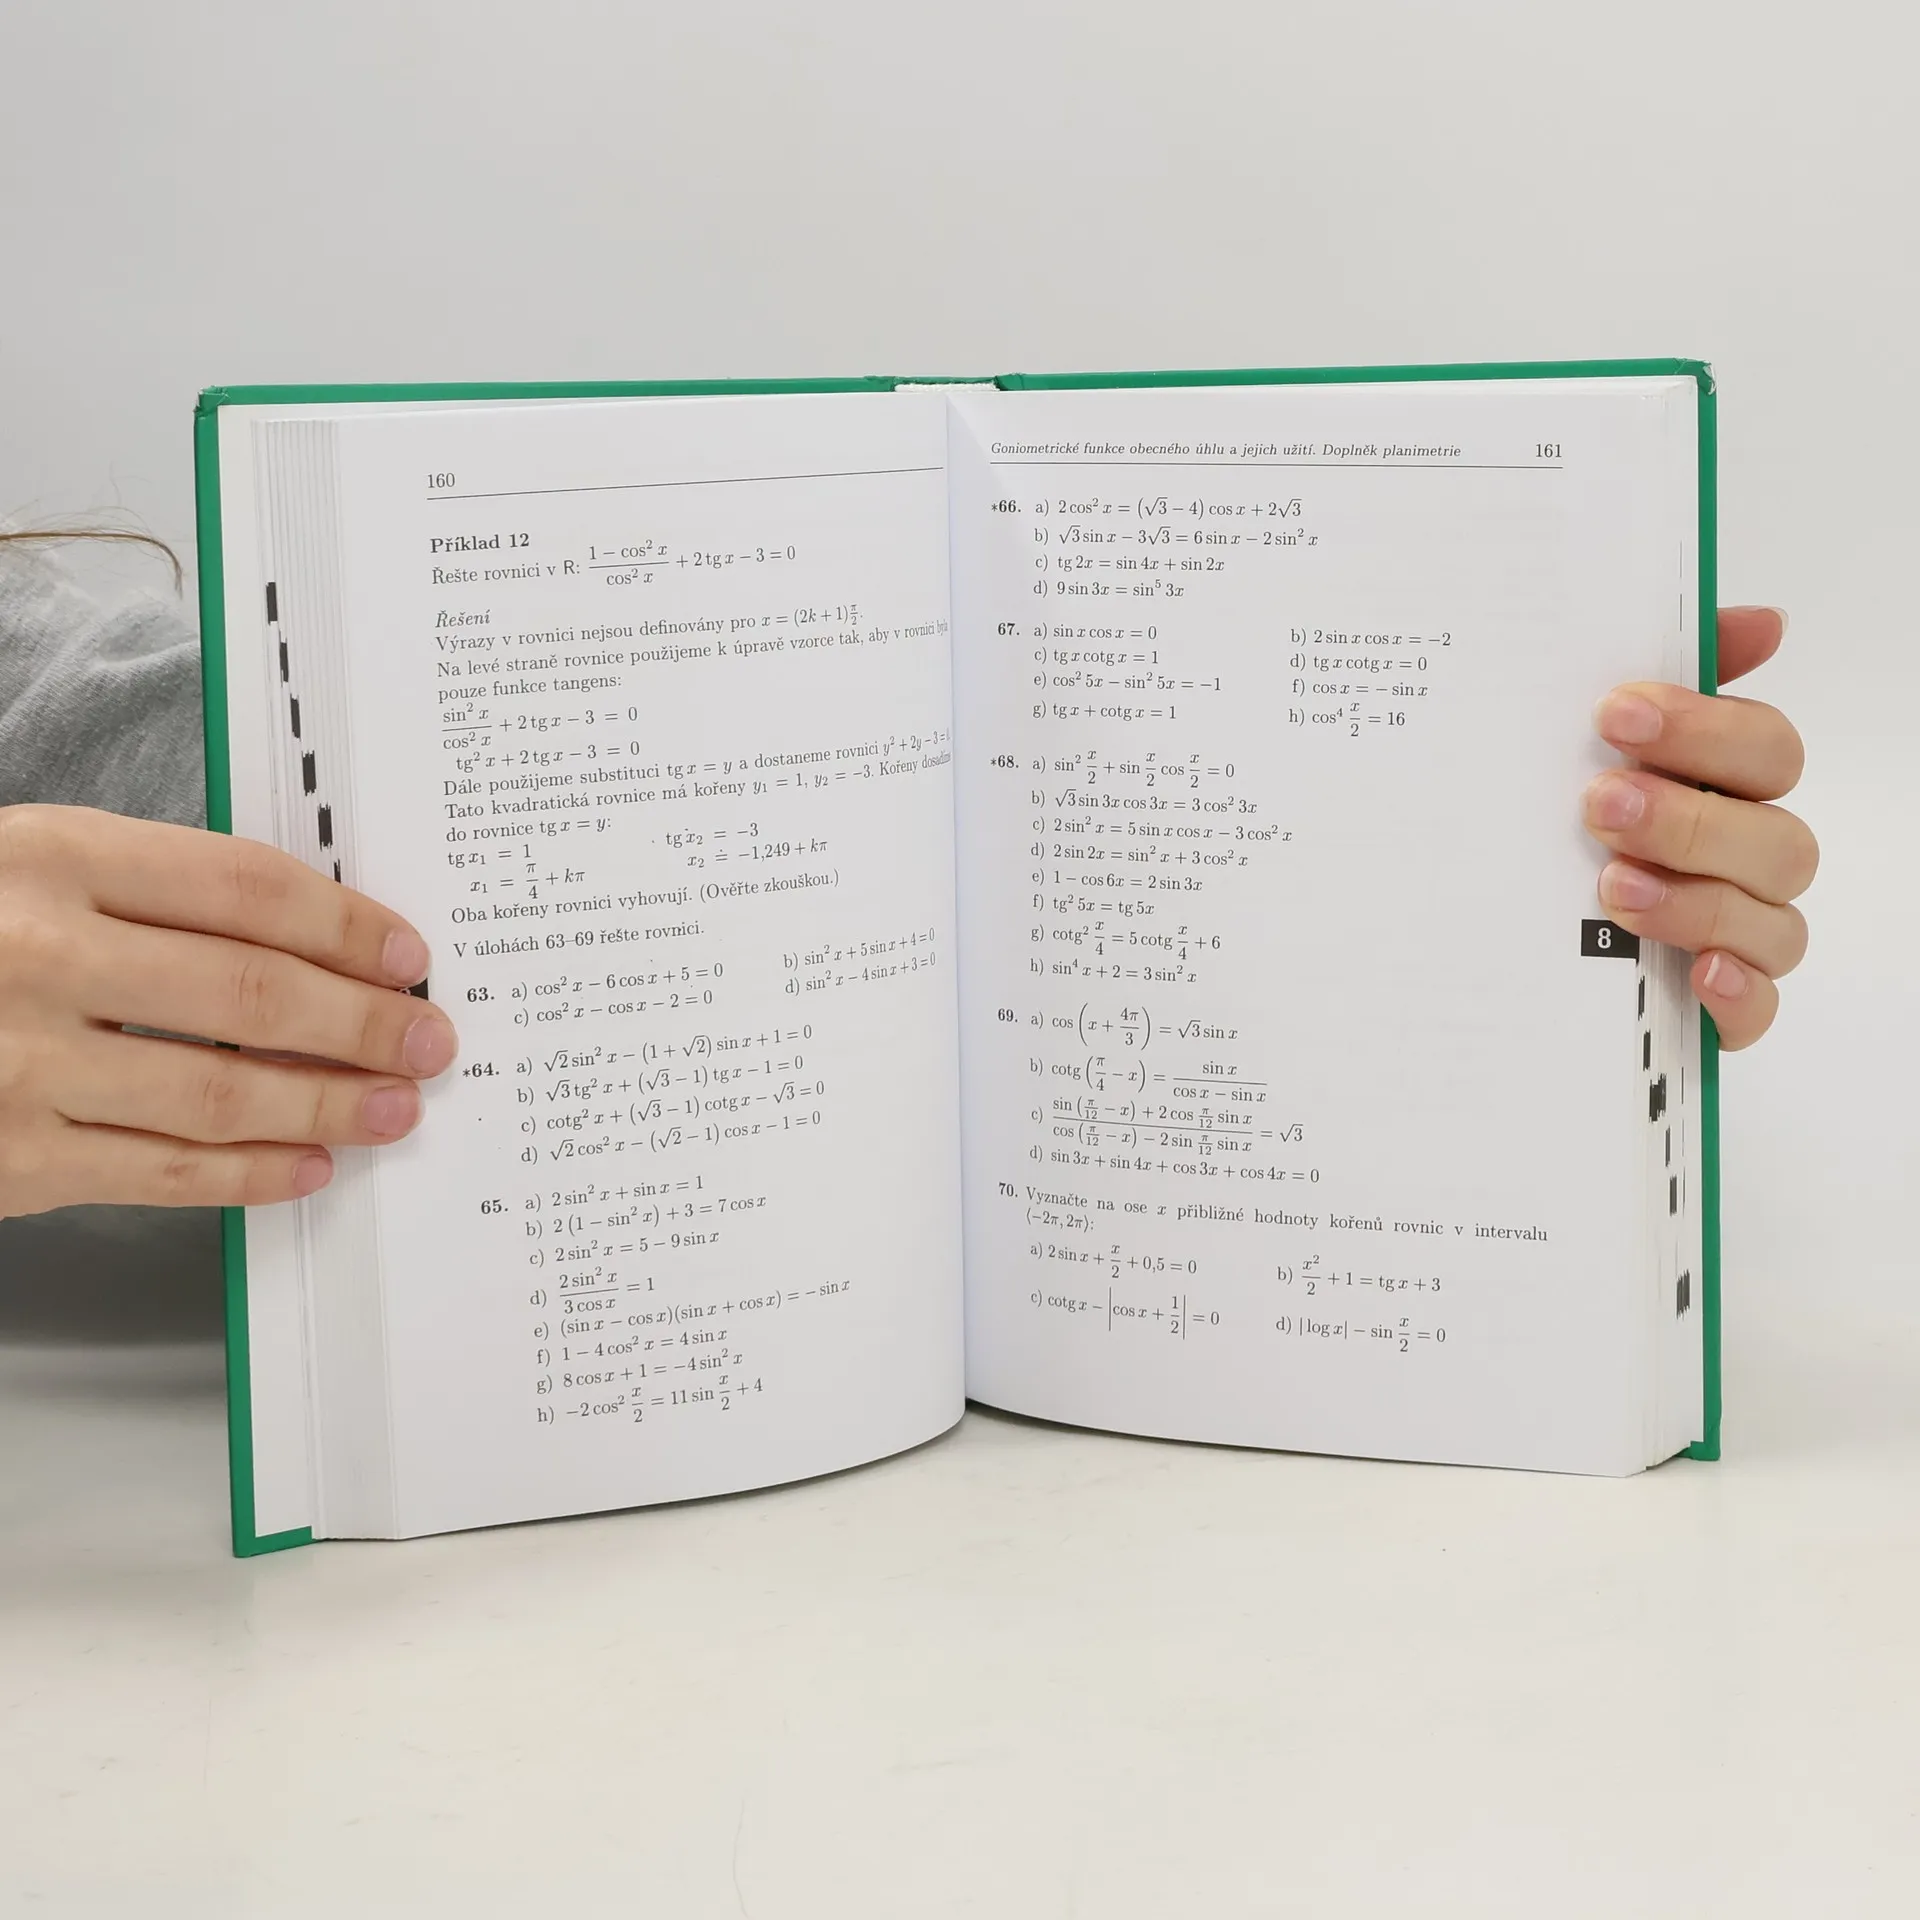 160
Příklad 12
Řešte rovnici v R: \frac{1 − cos² x}{cos² x} + 2 tg x − 3 = 0
Řešení
Výrazy v rovnici nejsou definovány pro x = (2k + 1)\frac{π}{2}.
Na levé straně rovnice použijeme k úpravě vzorce tak, aby v rovnici byla
pouze funkce tangens:
\frac{sin² x}{cos² x} + 2 tg x − 3 = 0
tg² x + 2 tg x − 3 = 0
Dále použijeme substituci tg x = y a dostaneme rovnici y² + 2y − 3 =
Tato kvadratická rovnice má kořeny y₁ = 1, y₂ = −3. Kořeny dosadíme
do rovnice tg x = y:
tg x₁ = 1 tg x₂ = −3
x₁ = \frac{π}{4} + kπ x₂ ≐ −1,249 + kπ
Oba kořeny rovnici vyhovují. (Ověřte zkouškou.)
V úlohách 63–69 řešte rovnici.
63. a) cos² x − 6 cos x + 5 = 0 b) sin² x + 5 sin x + 4 = 0
c) cos² x − cos x − 2 = 0 d) sin² x − 4 sin x + 3 = 0
*64. a) √2 sin² x − (1 + √2) sin x + 1 = 0
b) √3 tg² x + (√3 − 1) tg x − 1 = 0
c) cotg² x + (√3 − 1) cotg x − √3 = 0
d) √2 cos² x − (√2 − 1) cos x − 1 = 0
65. a) 2 sin² x + sin x = 1
b) 2 (1 − sin² x) + 3 = 7 cos x
c) 2 sin² x = 5 − 9 sin x
d) \frac{2 sin² x}{3 cos x} = 1
e) (sin x − cos x)(sin x + cos x) = − sin x
f) 1 − 4 cos² x = 4 sin x
g) 8 cos x + 1 = −4 sin² x
h) −2 cos² \frac{x}{2} = 11 sin \frac{x}{2} + 4
Goniometrické funkce obecného úhlu a jejich užití. Doplněk planimetrie 161
*66. a) 2 cos² x = (√3 − 4) cos x + 2√3
b) √3 sin x − 3√3 = 6 sin x − 2 sin² x
c) tg 2x = sin 4x + sin 2x
d) 9 sin 3x = sin⁵ 3x
67. a) sin x cos x = 0 b) 2 sin x cos x = −2
c) tg x cotg x = 1 d) tg x cotg x = 0
e) cos² 5x − sin² 5x = −1 f) cos x = − sin x
g) tg x + cotg x = 1 h) cos⁴ \frac{x}{2} = 16
*68. a) sin² \frac{x}{2} + sin \frac{x}{2} cos \frac{x}{2} = 0
b) √3 sin 3x cos 3x = 3 cos² 3x
c) 2 sin² x = 5 sin x cos x − 3 cos² x
d) 2 sin 2x = sin² x + 3 cos² x
e) 1 − cos 6x = 2 sin 3x
f) tg² 5x = tg 5x
g) cotg² \frac{x}{4} = 5 cotg \frac{x}{4} + 6
h) sin⁴ x + 2 = 3 sin² x
69. a) cos (x + \frac{4π}{3}) = √3 sin x
b) cotg (\frac{π}{4} − x) = \frac{sin x}{cos x − sin x}
c) \frac{sin (\frac{π}{12} − x) + 2 cos \frac{π}{12} sin x}{cos (\frac{π}{12} − x) − 2 sin \frac{π}{12} sin x} = √3
d) sin 3x + sin 4x + cos 3x + cos 4x = 0
70. Vyznačte na ose x přibližné hodnoty kořenů rovnic v intervalu
⟨−2π, 2π⟩:
a) 2 sin x + \frac{x}{2} + 0,5 = 0 b) \frac{x²}{2} + 1 = tg x + 3
c) cotg x − |cos x + \frac{1}{2}| = 0 d) | log x| − sin \frac{x}{2} = 0
8